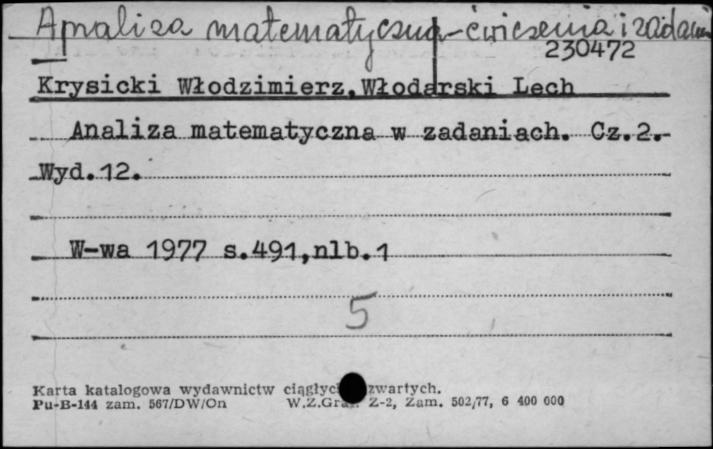 Analiza matematyczna - ćwiczenia i zadania
230472
Krysicki Włodzimierz, Włodarski Lech
Analiza matematyczna w zadaniach. Cz.2.-
Wyd.12.
W-wa 1977 s.491,nlb.1
5
Karta katalogowa wydawnictw zwartych.
Pu-B-144 zam. 567/DW/On W.Z.Graf. Z-2, Zam. 502/77, 6 400 000